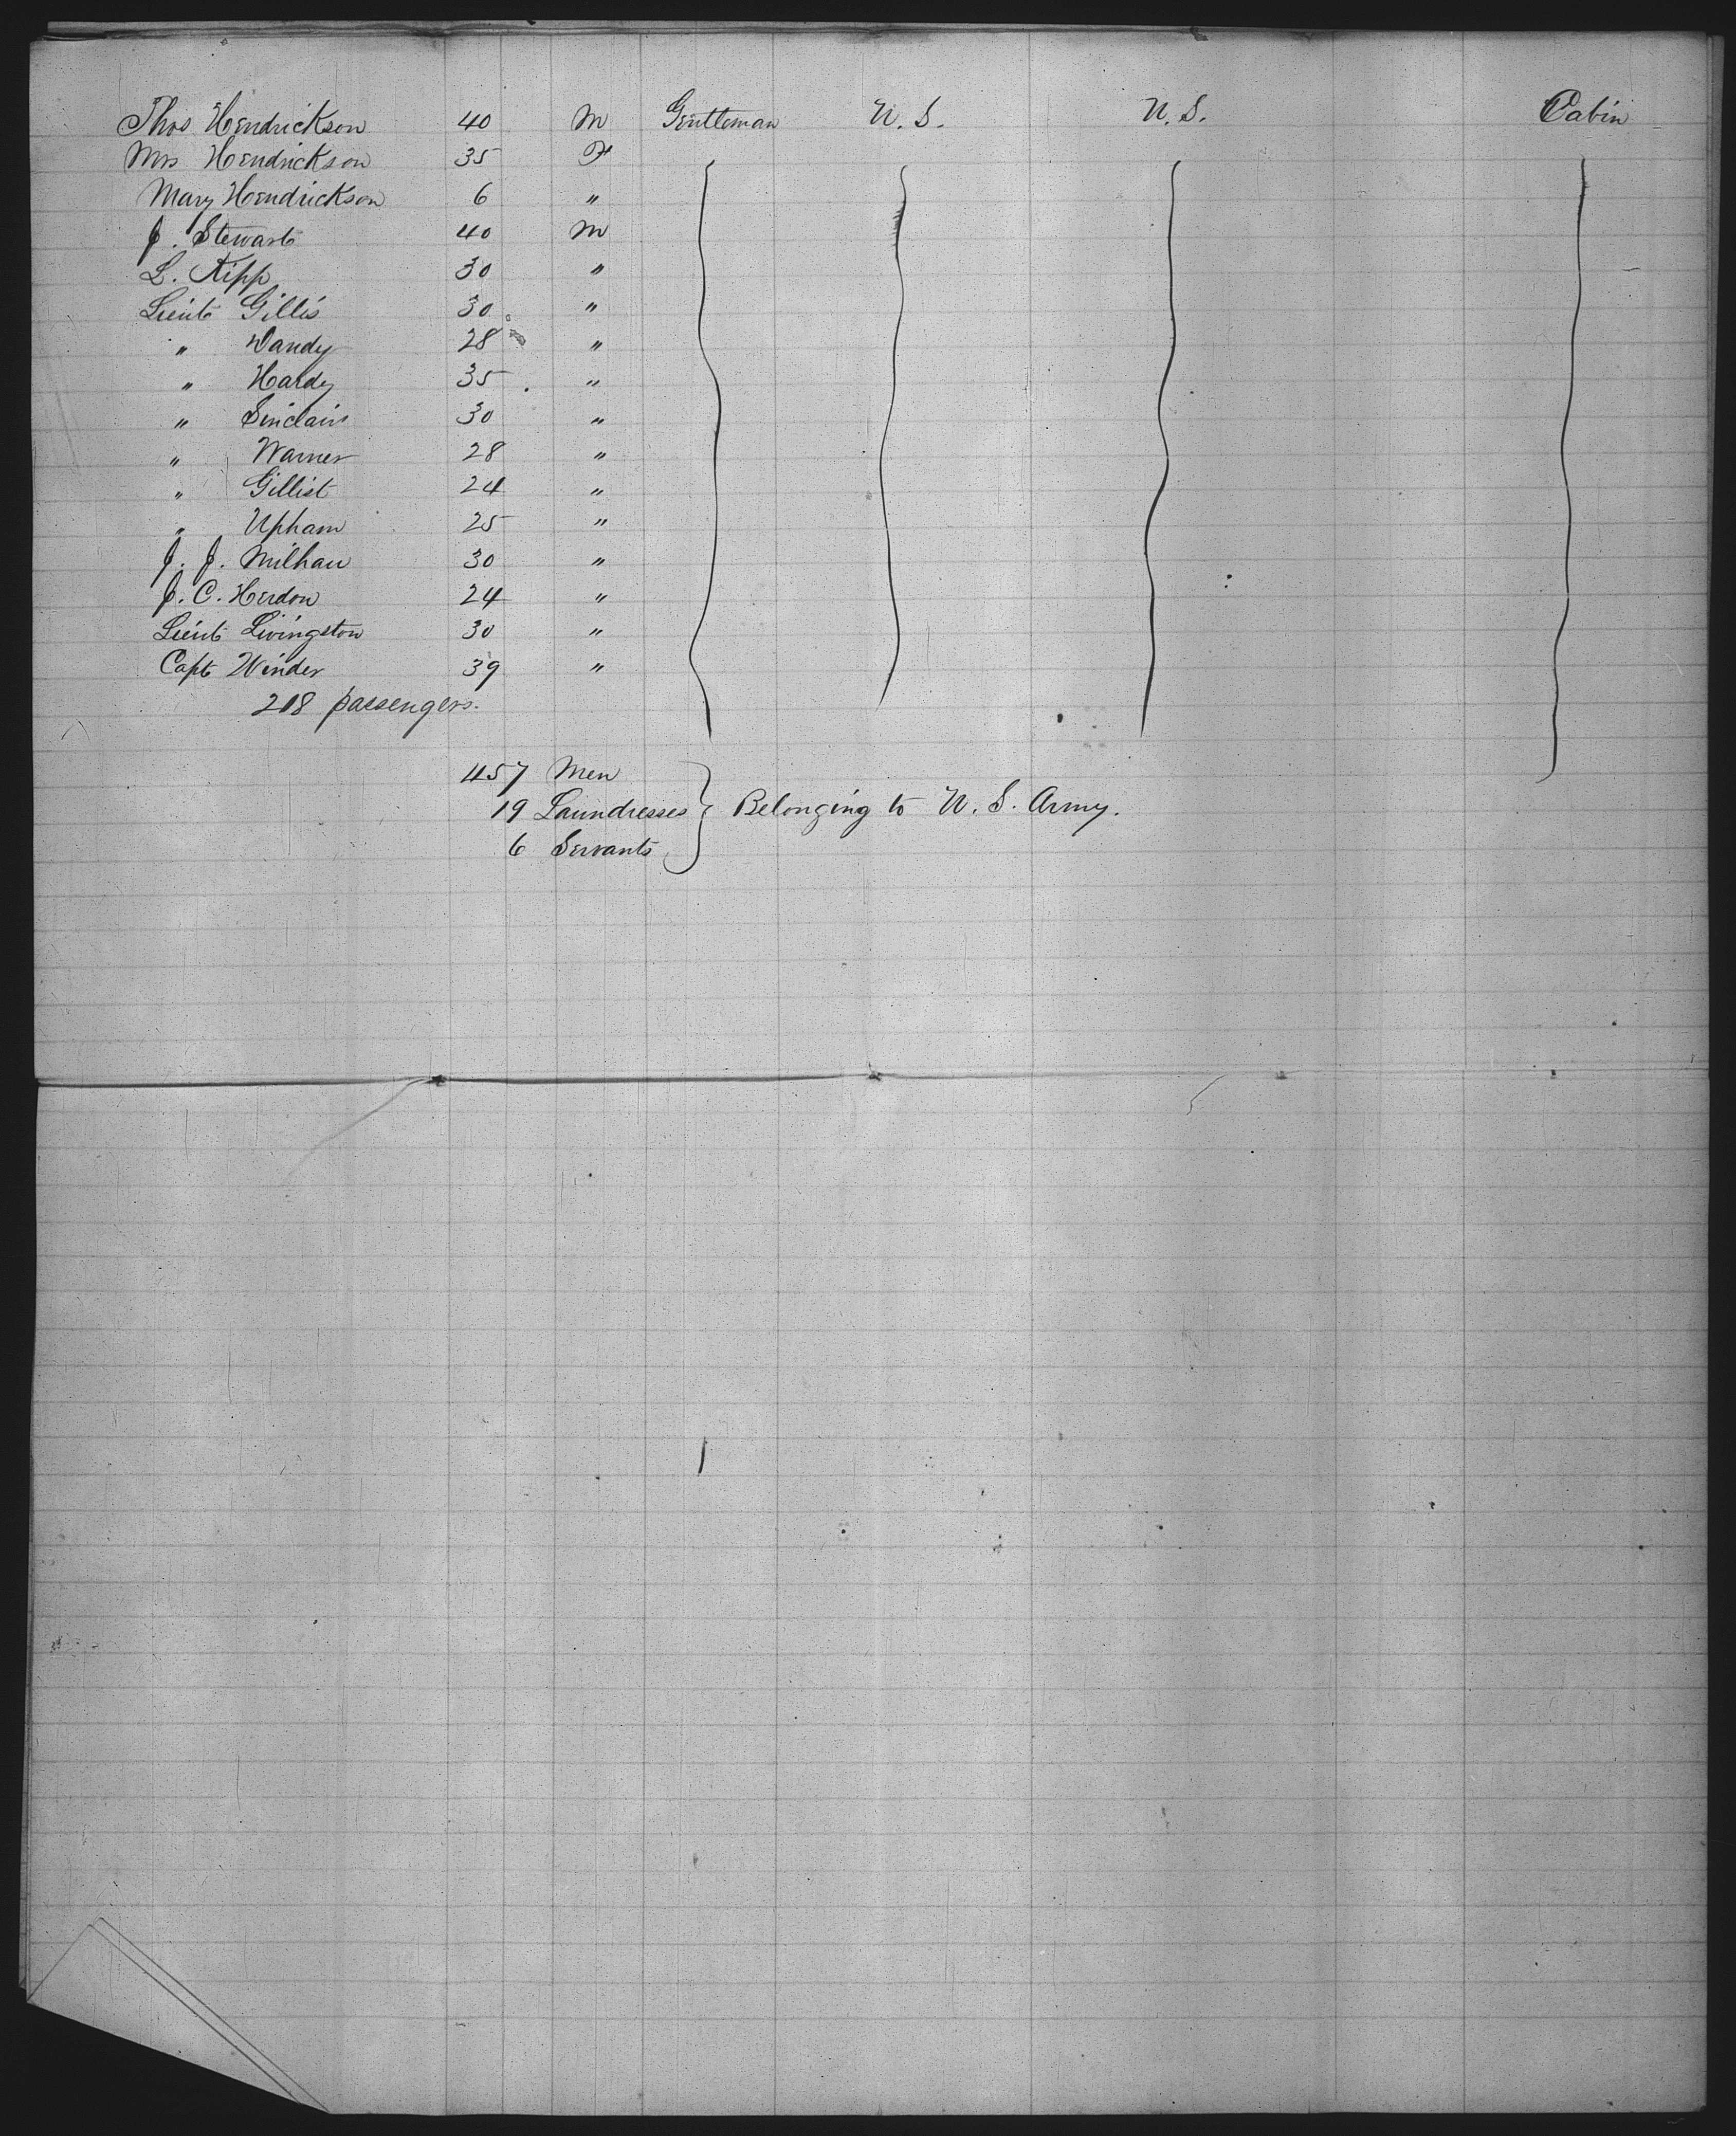 Thos Hendrickson 40 M Gentleman U. S. U. S. Cabin
Mrs Hendrickson 35 F
Mary Hendrickson 6 "
J. Stewart 40 M
L. Kipp 30 "
Lieut Gillis 30 "
" Dandy 28 "
" Hardy 35 "
" Sinclair 30 "
" Warner 28 "
" Gillist 24 "
" Upham 25 "
J. J. Milhau 30 "
J. C. Herdon 24 "
Lieut Livingston 30 "
Capt Winder 39 "
218 passengers.
457 Men
19 Laundresses } Belonging to U. S. Army.
6 Servants